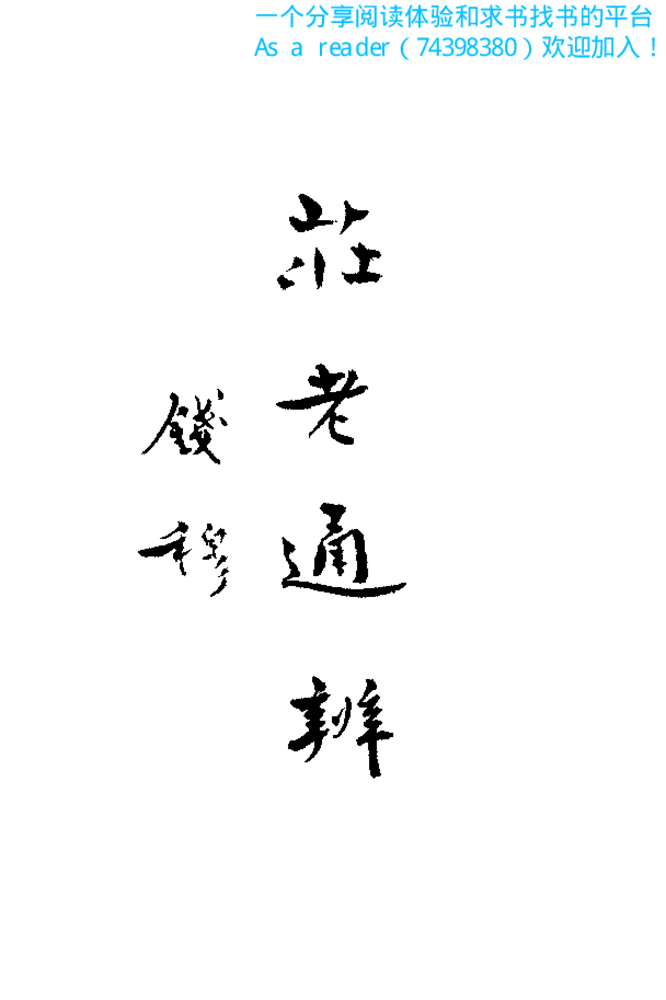 一个分享阅读体验和求书找书的平台
As a reader（74398380）欢迎加入！
莊老通辨
錢穆